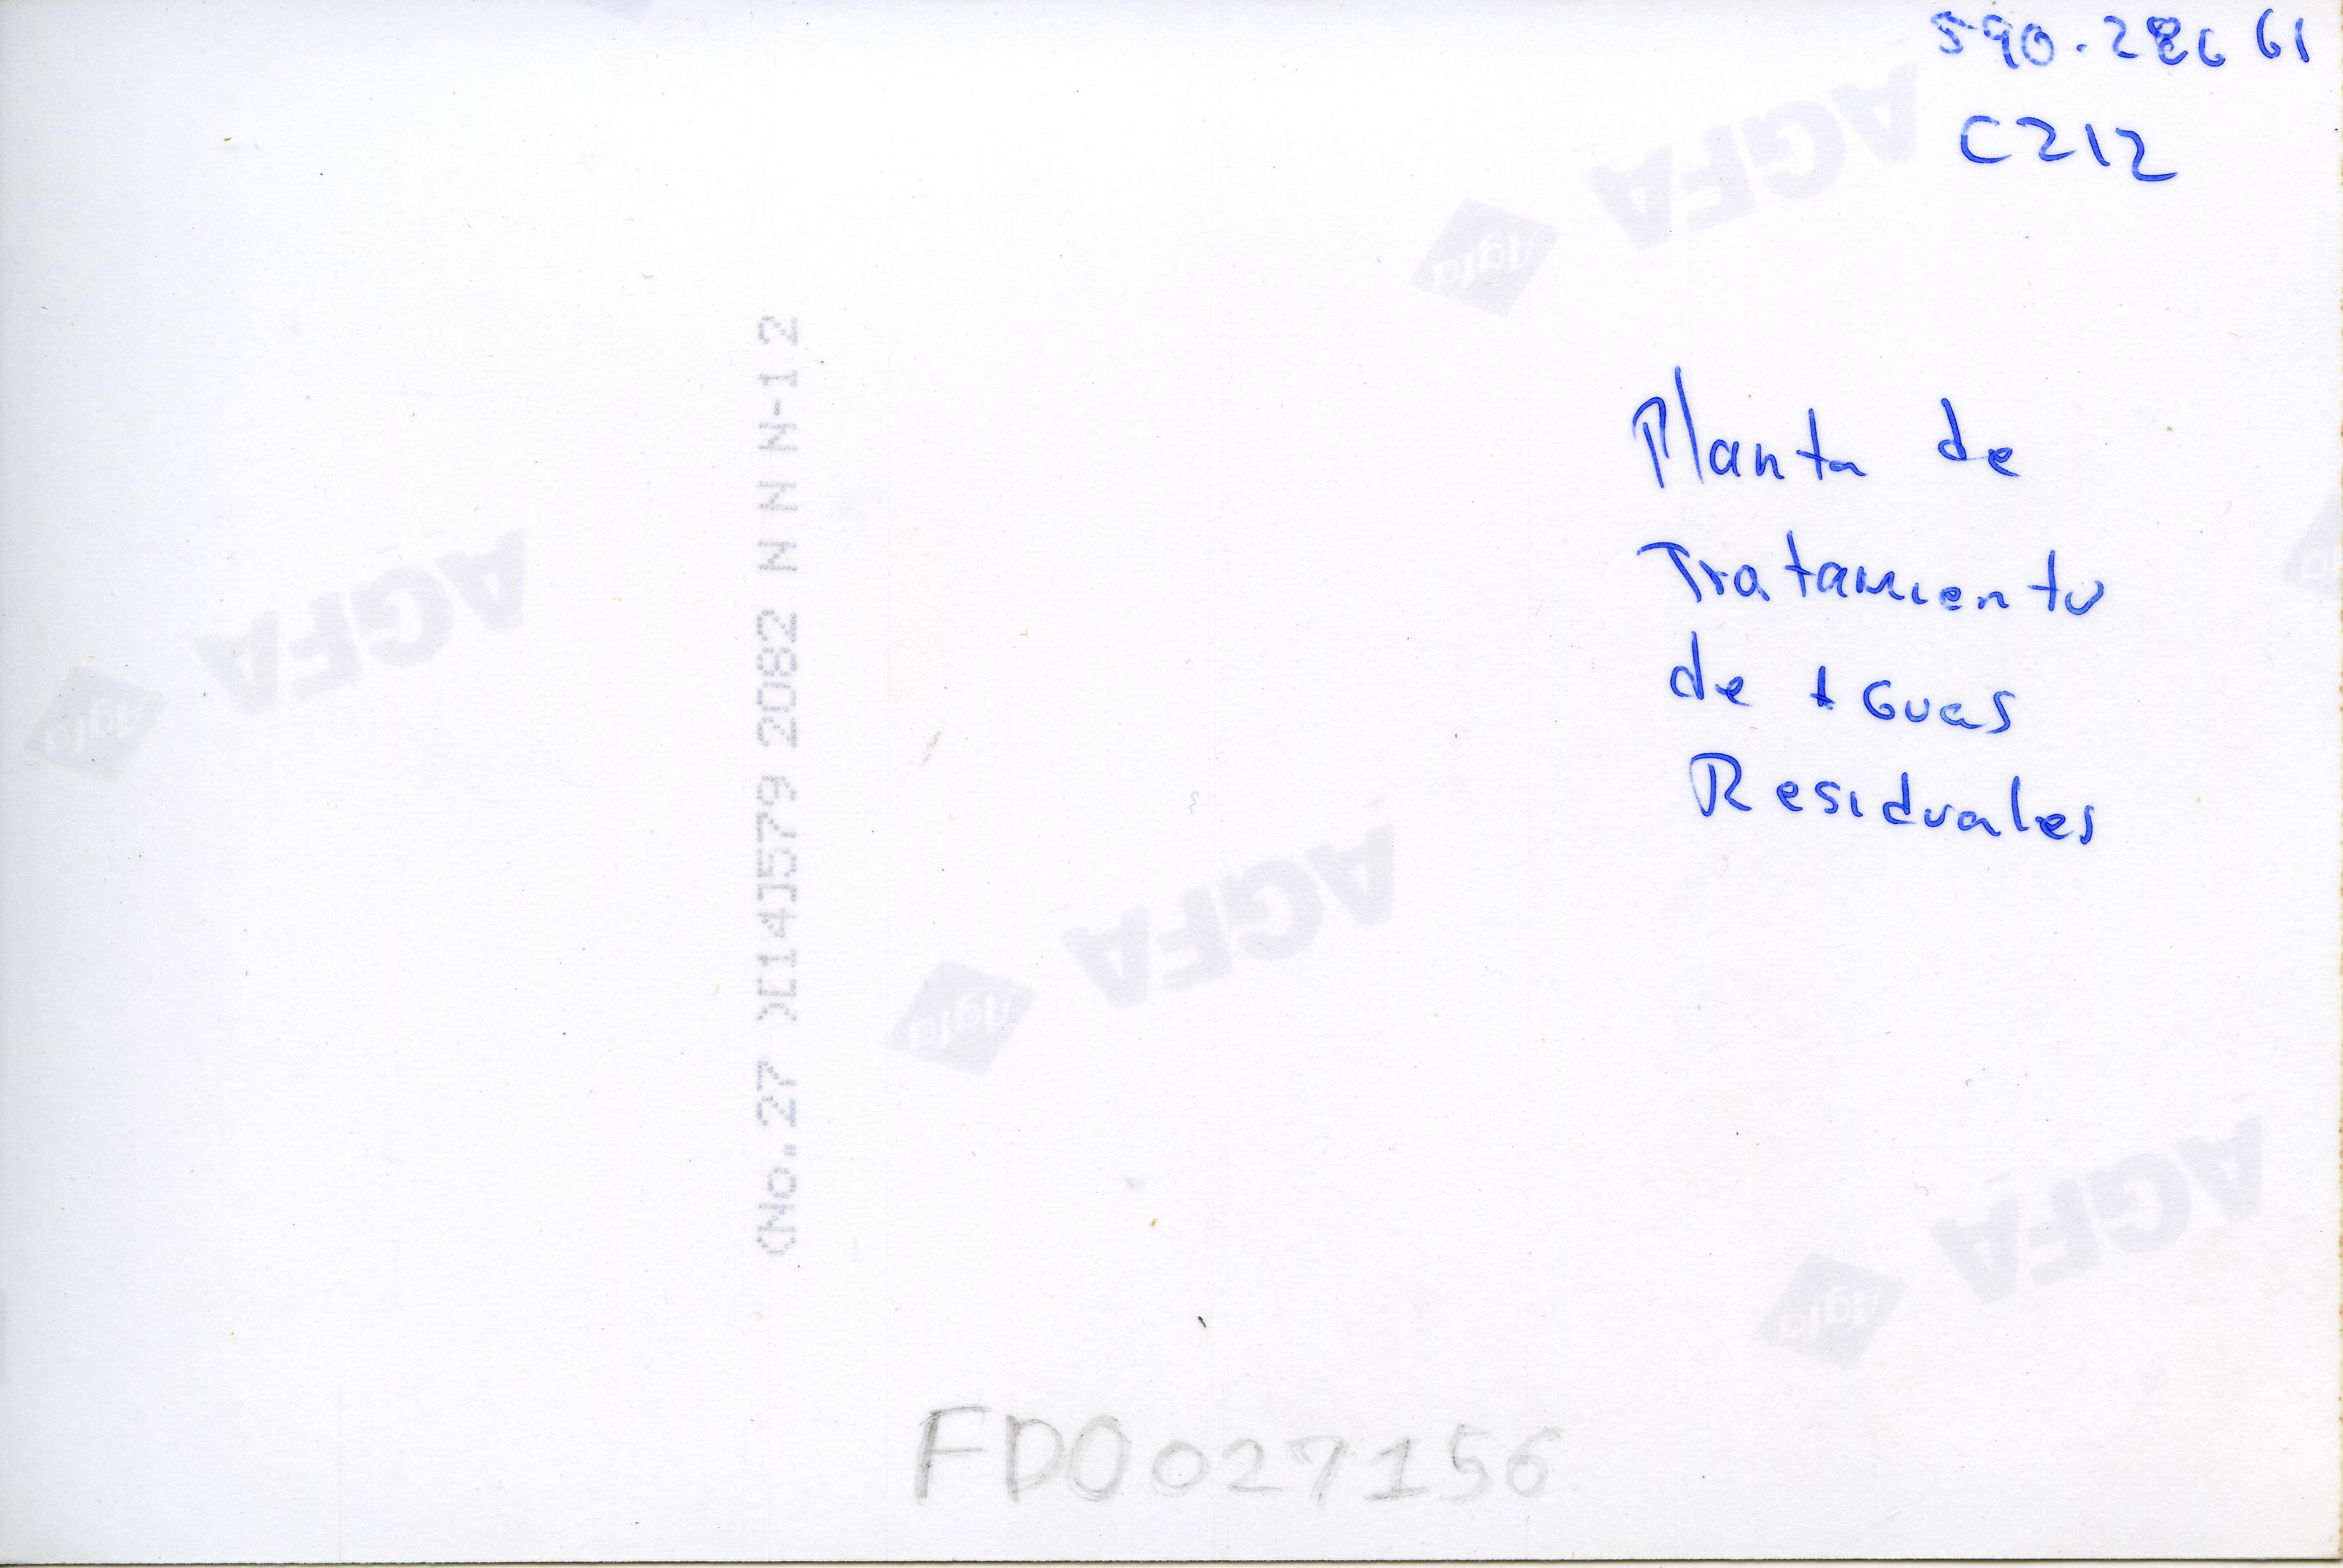 590.286 61
C212
Planta de
Tratamiento
de Aguas
Residuales
<No.27 >[14]579 2082 N N N-12
AGFA
Agfa
AGFA
Agfa
AGFA
Agfa
AGFA
Agfa
FD0027156